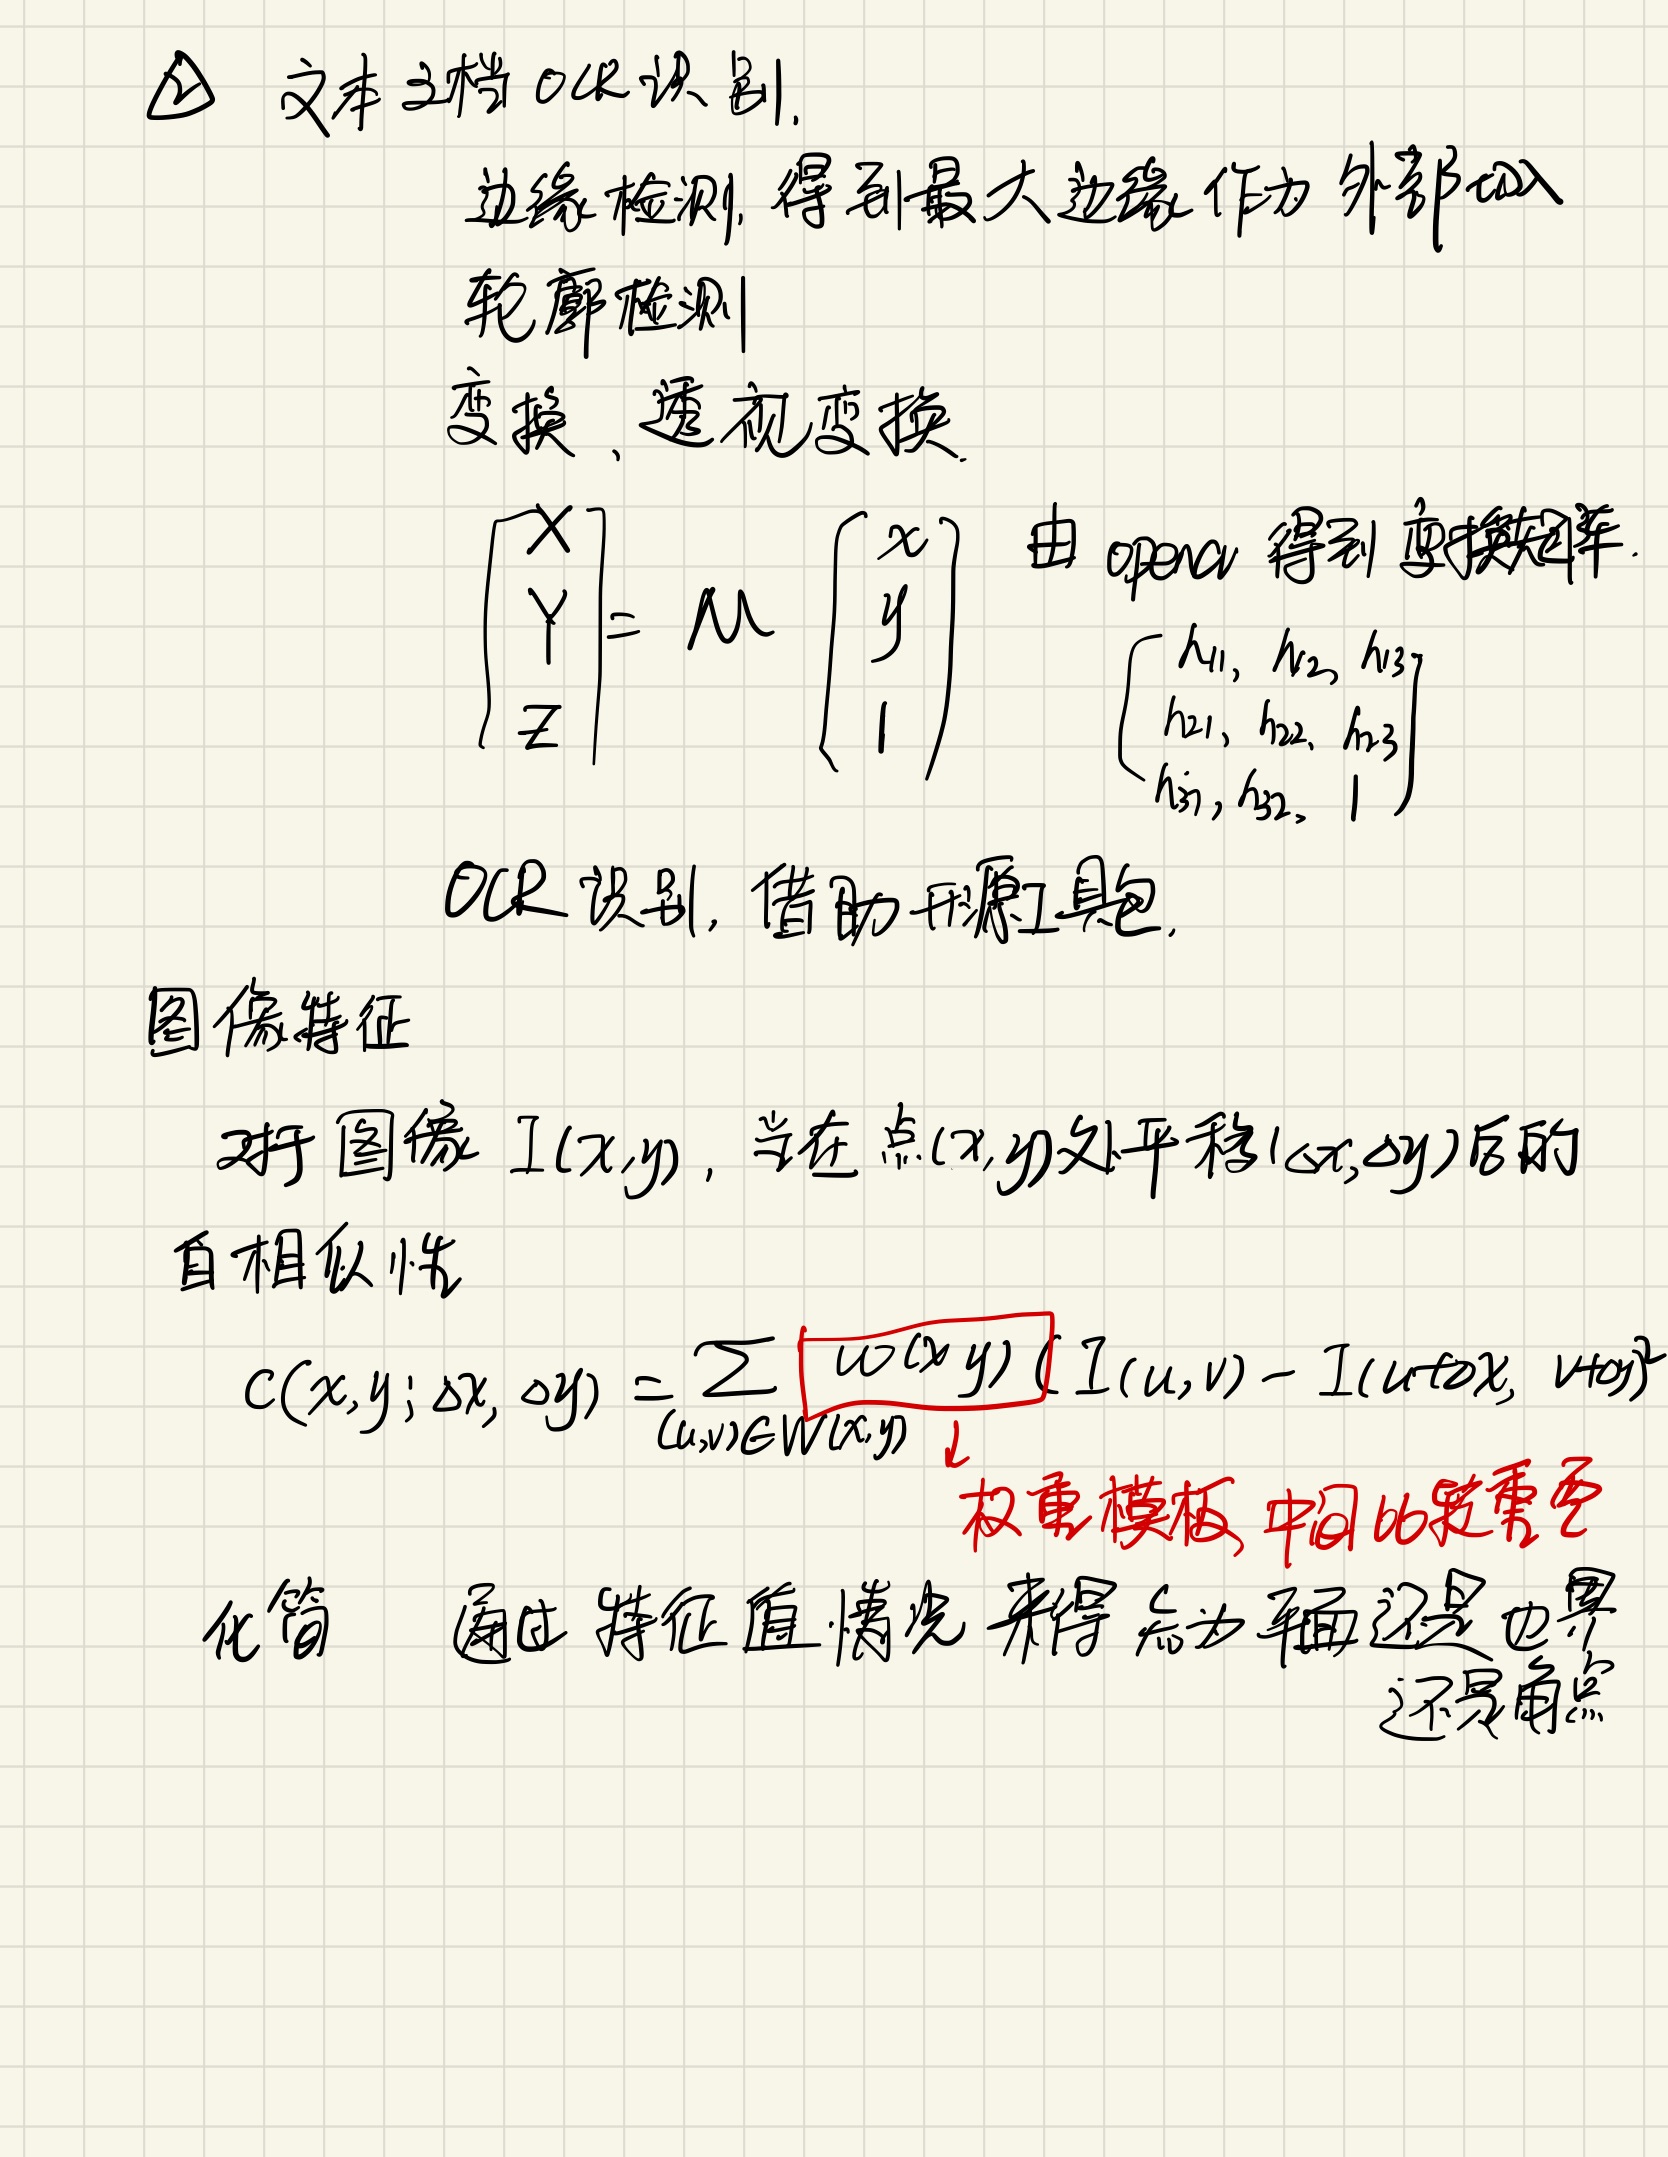 ② 文本文档OCR识别.
边缘检测, 得到最大边缘作为外部切入
轮廓检测
变换、透视变换.
[X Y Z] = M [x y 1] 由opencv得到变换矩阵.
h11, h12, h13
h21, h22, h23
h31, h32, 1
OCR识别, 借助开源工具包.
图像特征
对于图像 I(x,y), 当在点(x,y)处平移(Δx,Δy)后的
自相似性
c(x,y;Δx,Δy) = Σ w(x y) (I(u,v) - I(u+Δx, v+Δy)²
(u,v)∈W(x,y)
↓
权重模板 中间比较重要
化简 通过特征值情况来得点为平面还是边界
还是角点